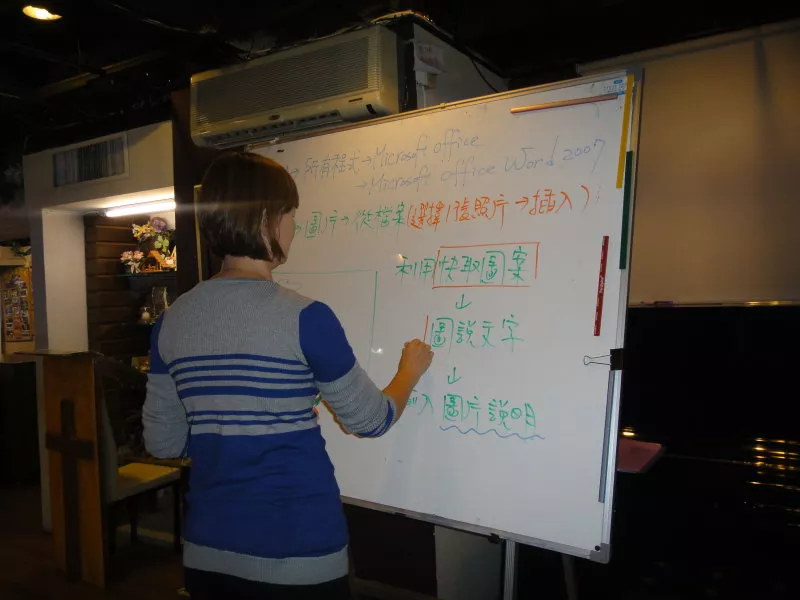 →所有程式→Microsoft office
→Microsoft office Word 2007
→圖片→從檔案(選擇1張照片→插入)
利用快取圖案
↓
圖說文字
↓
入圖片說明